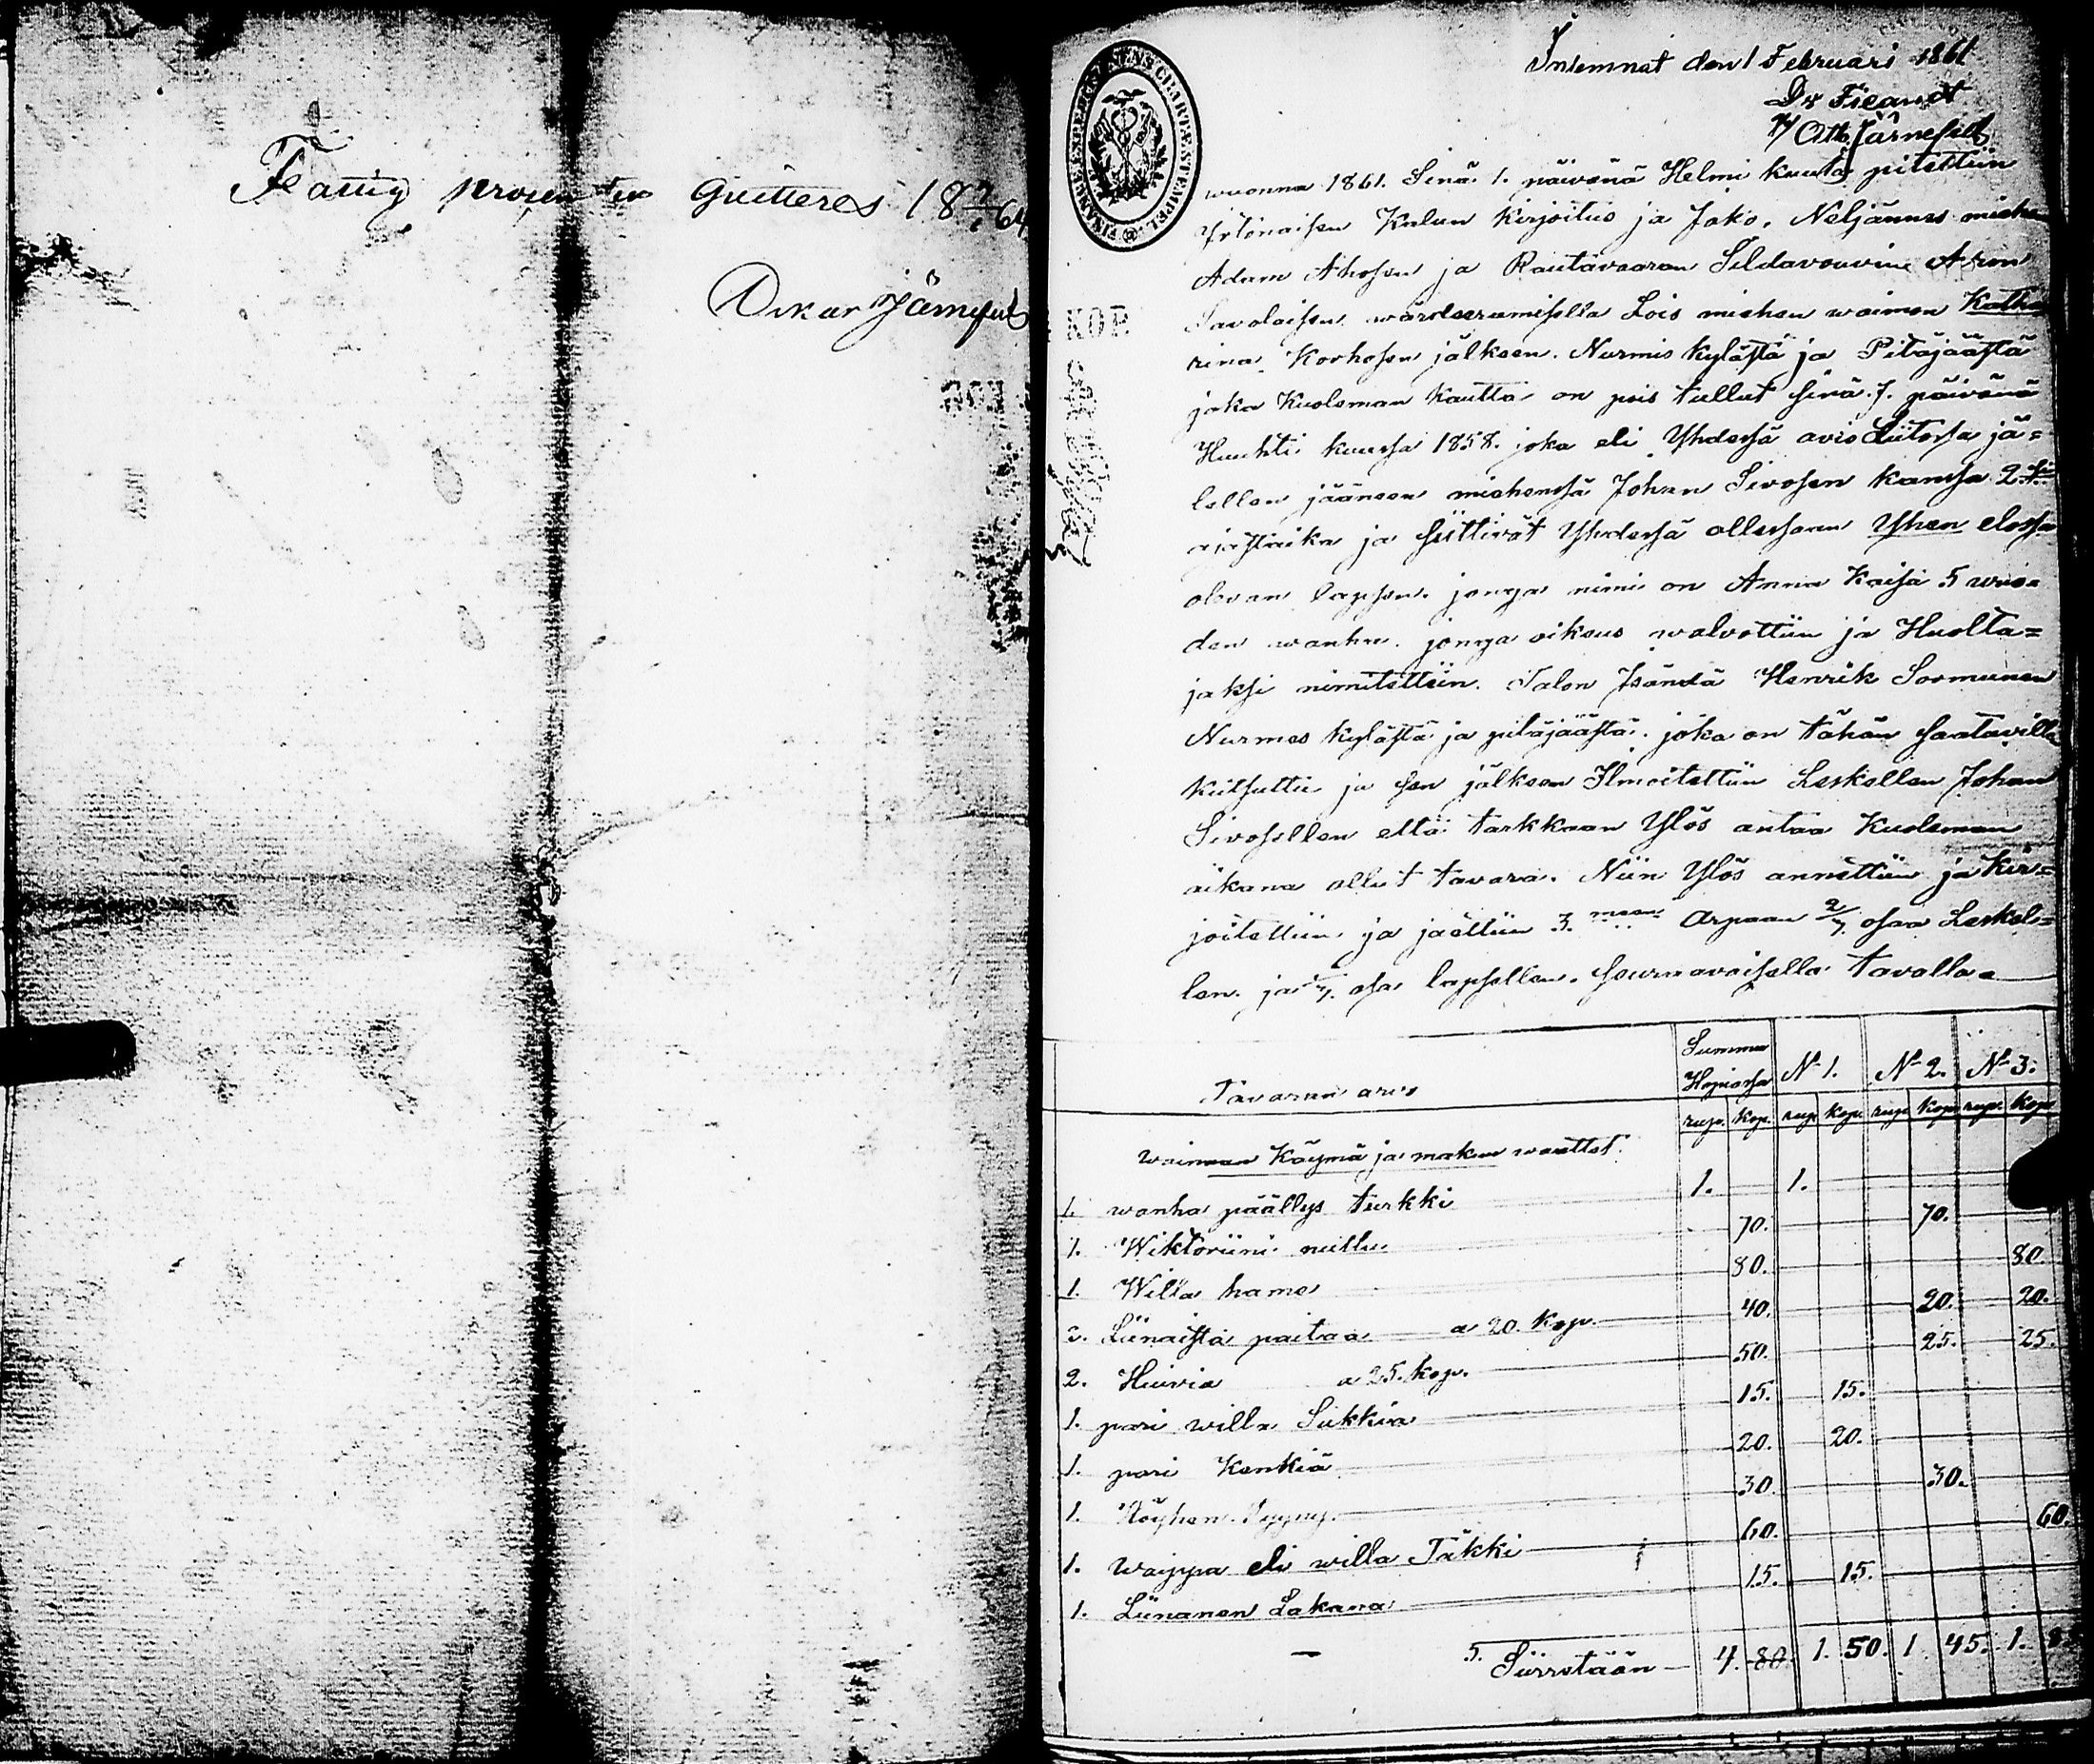 Fattig procenten quitteras 18 7/1 64
Oskar Järnefelt
Inlemnat den 1 Februari 1861
Dr Fieandt
Oth. Järnefelt
FINANCE EXPEDITIONENS CHARTÆ STÄMPEL
KOP.
wuonna 1861. Sinä 1. päivänä Helmi kuuta pitettiin
irtonaisen Kalun kirjoitus ja Jako, Neljännes miehen
Adam Ahosen ja Rautavaaran Sildavouvin Aron
Savolaisen wärdeeramisella Lois miehen waimon Katha
rina Korhosen jälkeen. Nurmis kylästä ja Pitäjäästä
joka Kuoleman kautta on pois tullut sinä 7. päivänä
Huuhti kuussa 1858. joka eli Yhdessä avio Liitossa jä=
lellen jääneen miehensä Johan Sivosen kanssa 2.
ajastaika ja siittivät Yhdessä ollessaan Yhen elossa
olevan lapsen. jonga nimi on Anna Kaisa 5 wuo=
den wanha. jonga oikeus walvottiin ja Huolta=
jaksi nimitettiin. Talon Isändä Henrik Sormunen
Nurmes kylästä ja pitäjäästä. joka on tähän saatavilla
kutsuttu ja sen jälkeen Ilmoitettiin Leskellen Johan
Sivosellen että tarkkaan Ylös antaa Kuoleman
aikana ollut tavara. Niin Ylös annettiin ja Kir=
joitettiin ja jaettiin 3. meen Arpaan 2/3 osaa Leskel=
len ja 1/3 osa lapsellen. seuraavaisella tavalla=
Tavaran arvo
Summa Hopiassa N 1. N 2. N 3.
rup. Kop. rup. Kop. rup. Kop. rup. Kop.
Waimon Käymä ja makuu waattet.
1. wanha päällys turkki 1. 1.
1. Wiktoriini nuttu 70. 70.
1. Willa hame 80. 80.
2. Liinaista paitaa a 20. Kop. 40. 20. 20.
2. Huivia a 25. Kop. 50. 25. 25.
1. pari willa Sukkia 15. 15.
1. pari Kenkiä 20. 20.
1. Höyhen 30. 30.
1. waippa eli willa Täkki 60. 60.
1. Liinanen Lakana 15. 15.
Siirretään 4. 80. 1. 50. 1. 45. 1.